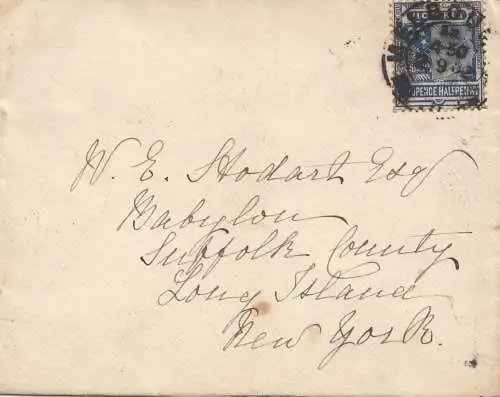 VICTORIA
4-30
PENCE HALFPENNY
W. E. Stodart Esq
Babylon
Suffolk County
Long Island
New York.